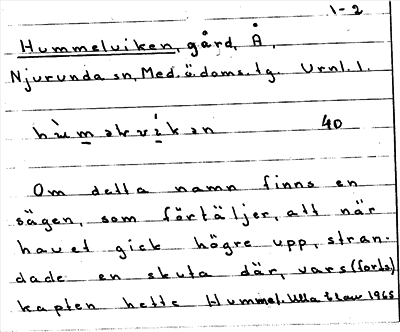 1-2
Hummelviken, gård, Å,
Njurunda sn, Med. ö. doms. tg. Vrnl. 1.
hùməlvíkən 40
Om detta namn finns en
sägen, som förtäljer, att när
havet gick högre upp, stran-
dade en skuta där, vars (forts)
kapten hette Hummel. Ulla 1965